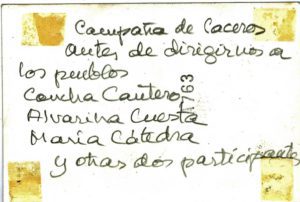 Campaña de Caceres
antes de dirigirnos a
los pueblos
Concha Cantero
Alvarina Cuesta
María Cátedra
y otras dos participantes
763